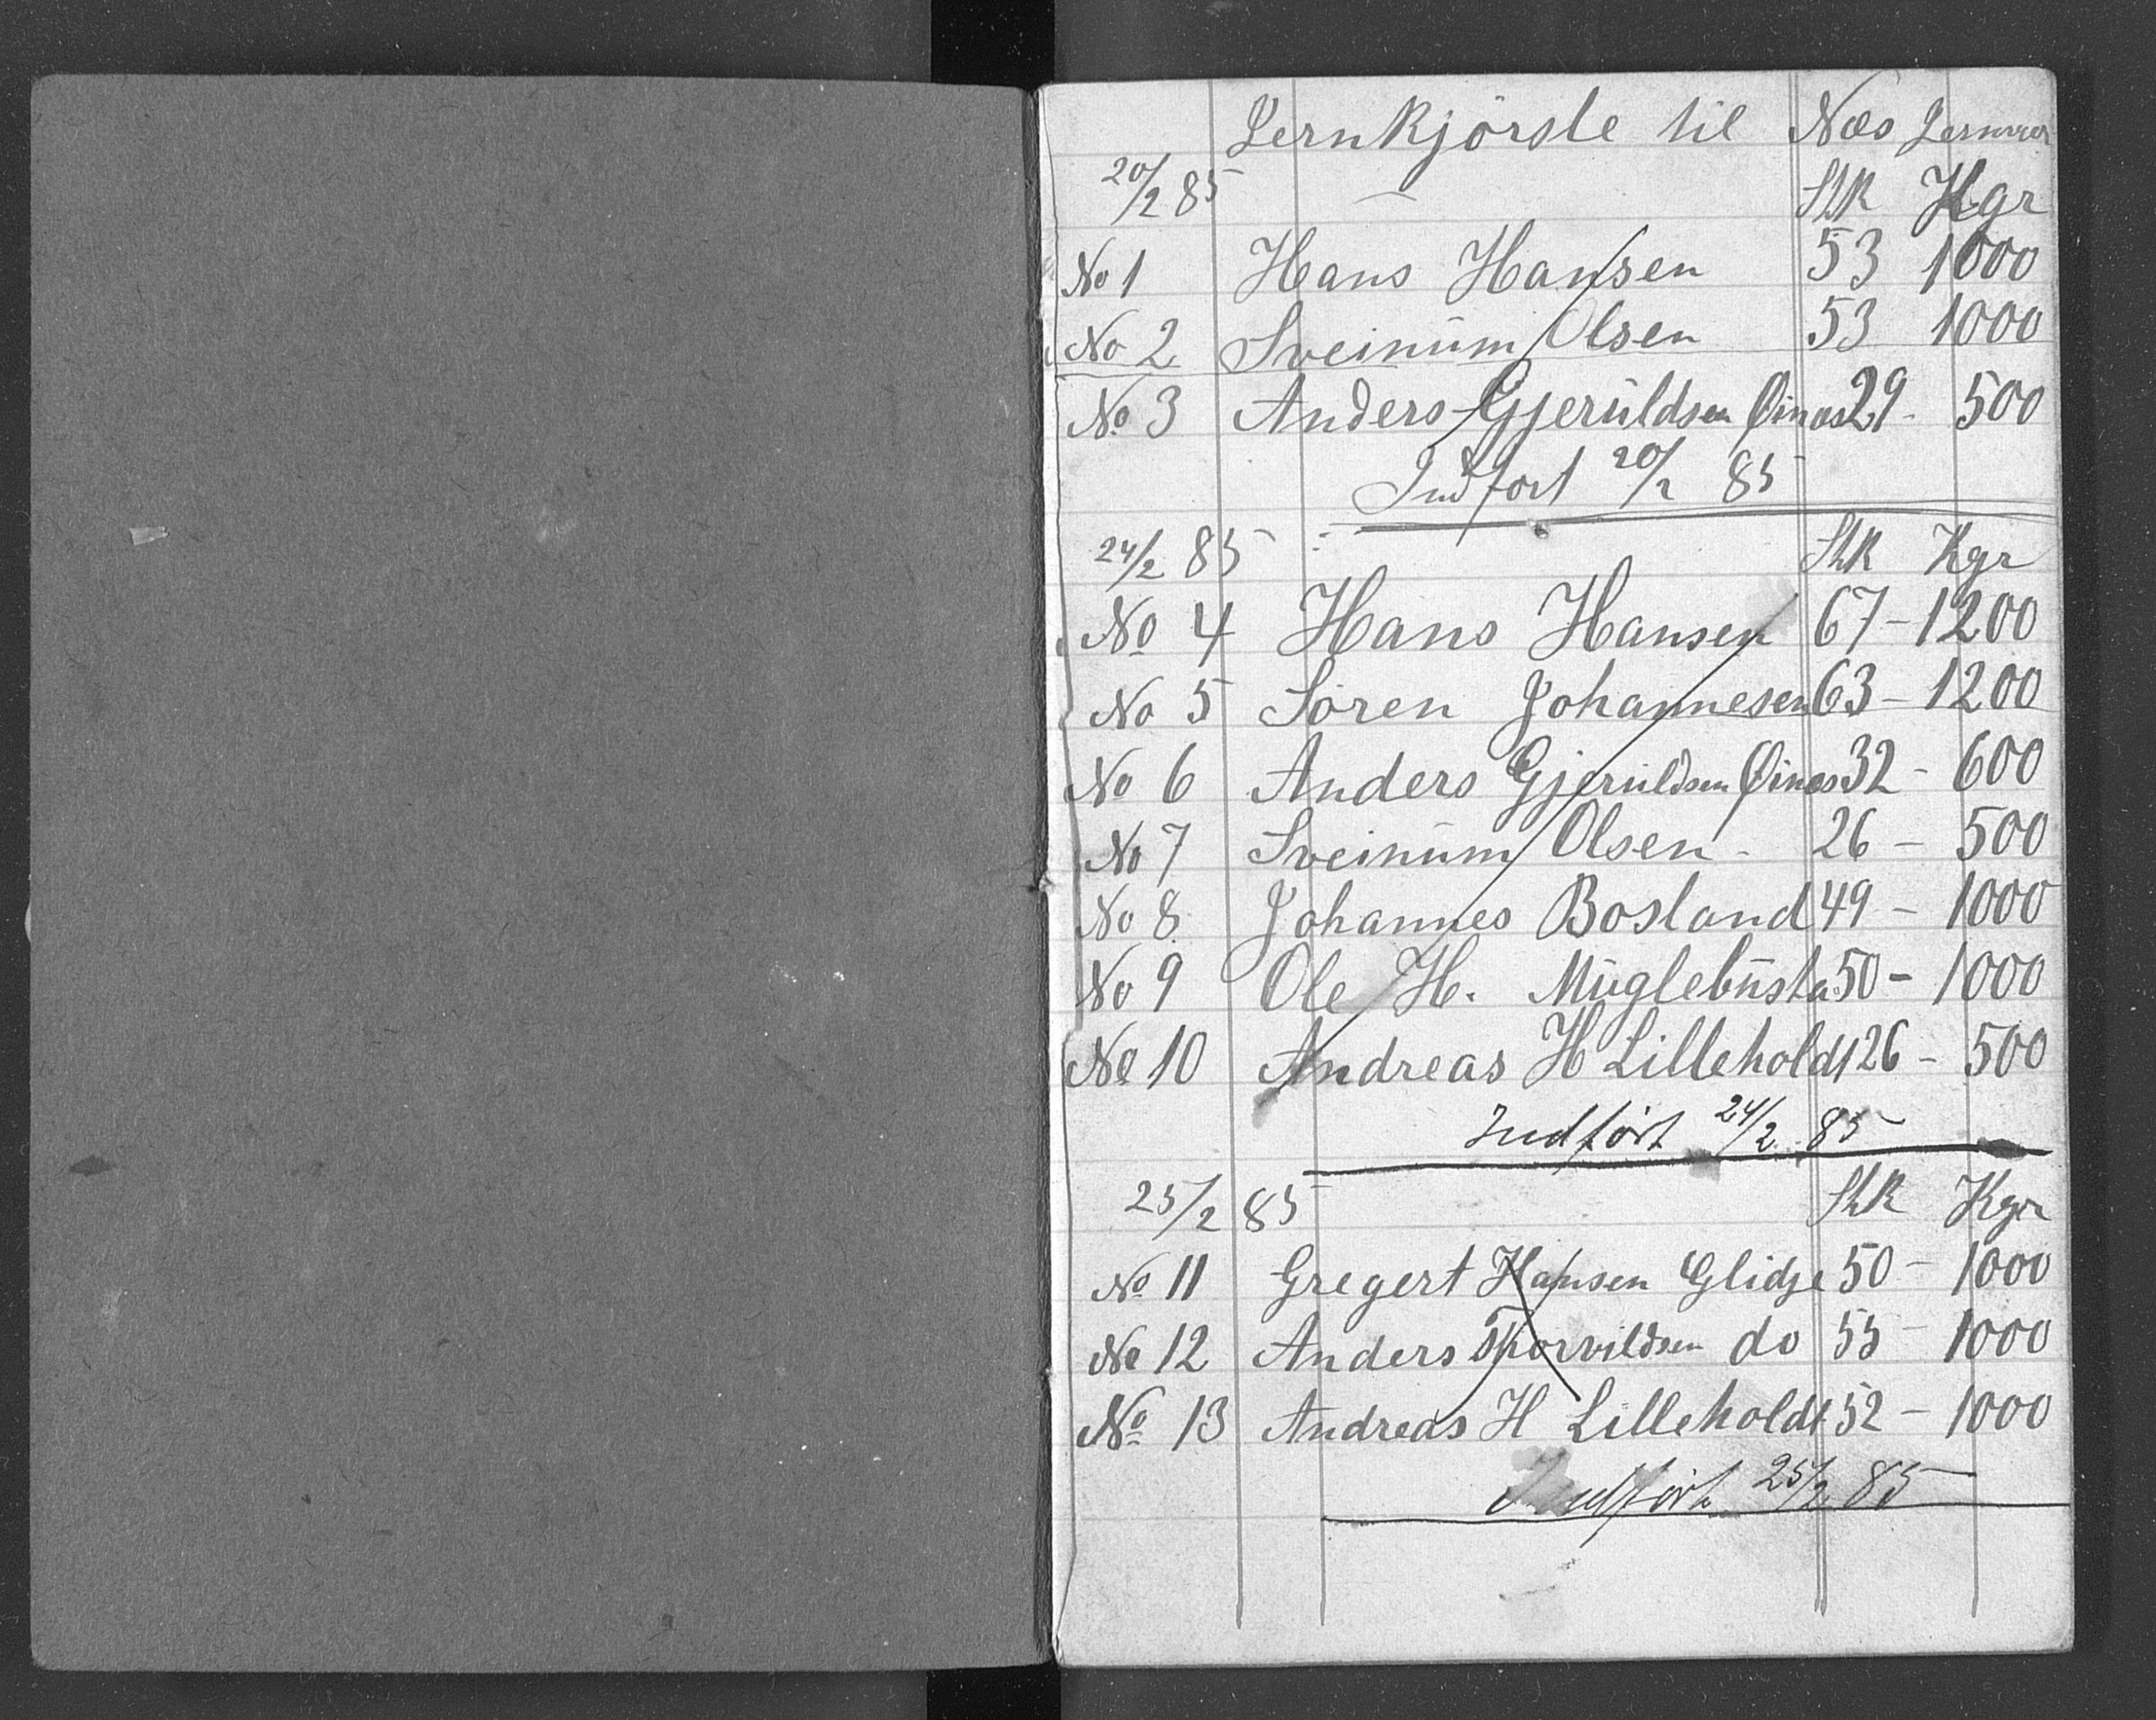 Jernkjörsle til Næs Jernver
20/2 85 Stk Kgr
No 1 Hans Hansen 53 1000
No 2 Sveinüm Olsen 53 1000
No 3 Anders Gjerüldsen Øinæs 29 - 500
Indfort 20/2 85
24/2 85 Stk Kgr
No 4 Hans Hansen 67 - 1200
No 5 Sören Johannesen 63 - 1200
No 6 Anders Gjerüldsen Øinæs 32 - 600
No 7 Sveinüm Olsen - 26 - 500
No 8 Johannes Bosland 49 - 1000
No 9 Ole H. Müglebüsta 50 - 1000
No 10 Andreas H Lilleholdt 26 - 500
Indfört 24/2 85
25/2 85 Stk Kgr
No 11 Gregert Hansen Glidje 50 - 1000
No 12 Anders Thorvildsen do 55 - 1000
No 13 Andreas H Lilleholdt 52 - 1000
Indfört 25/2 85